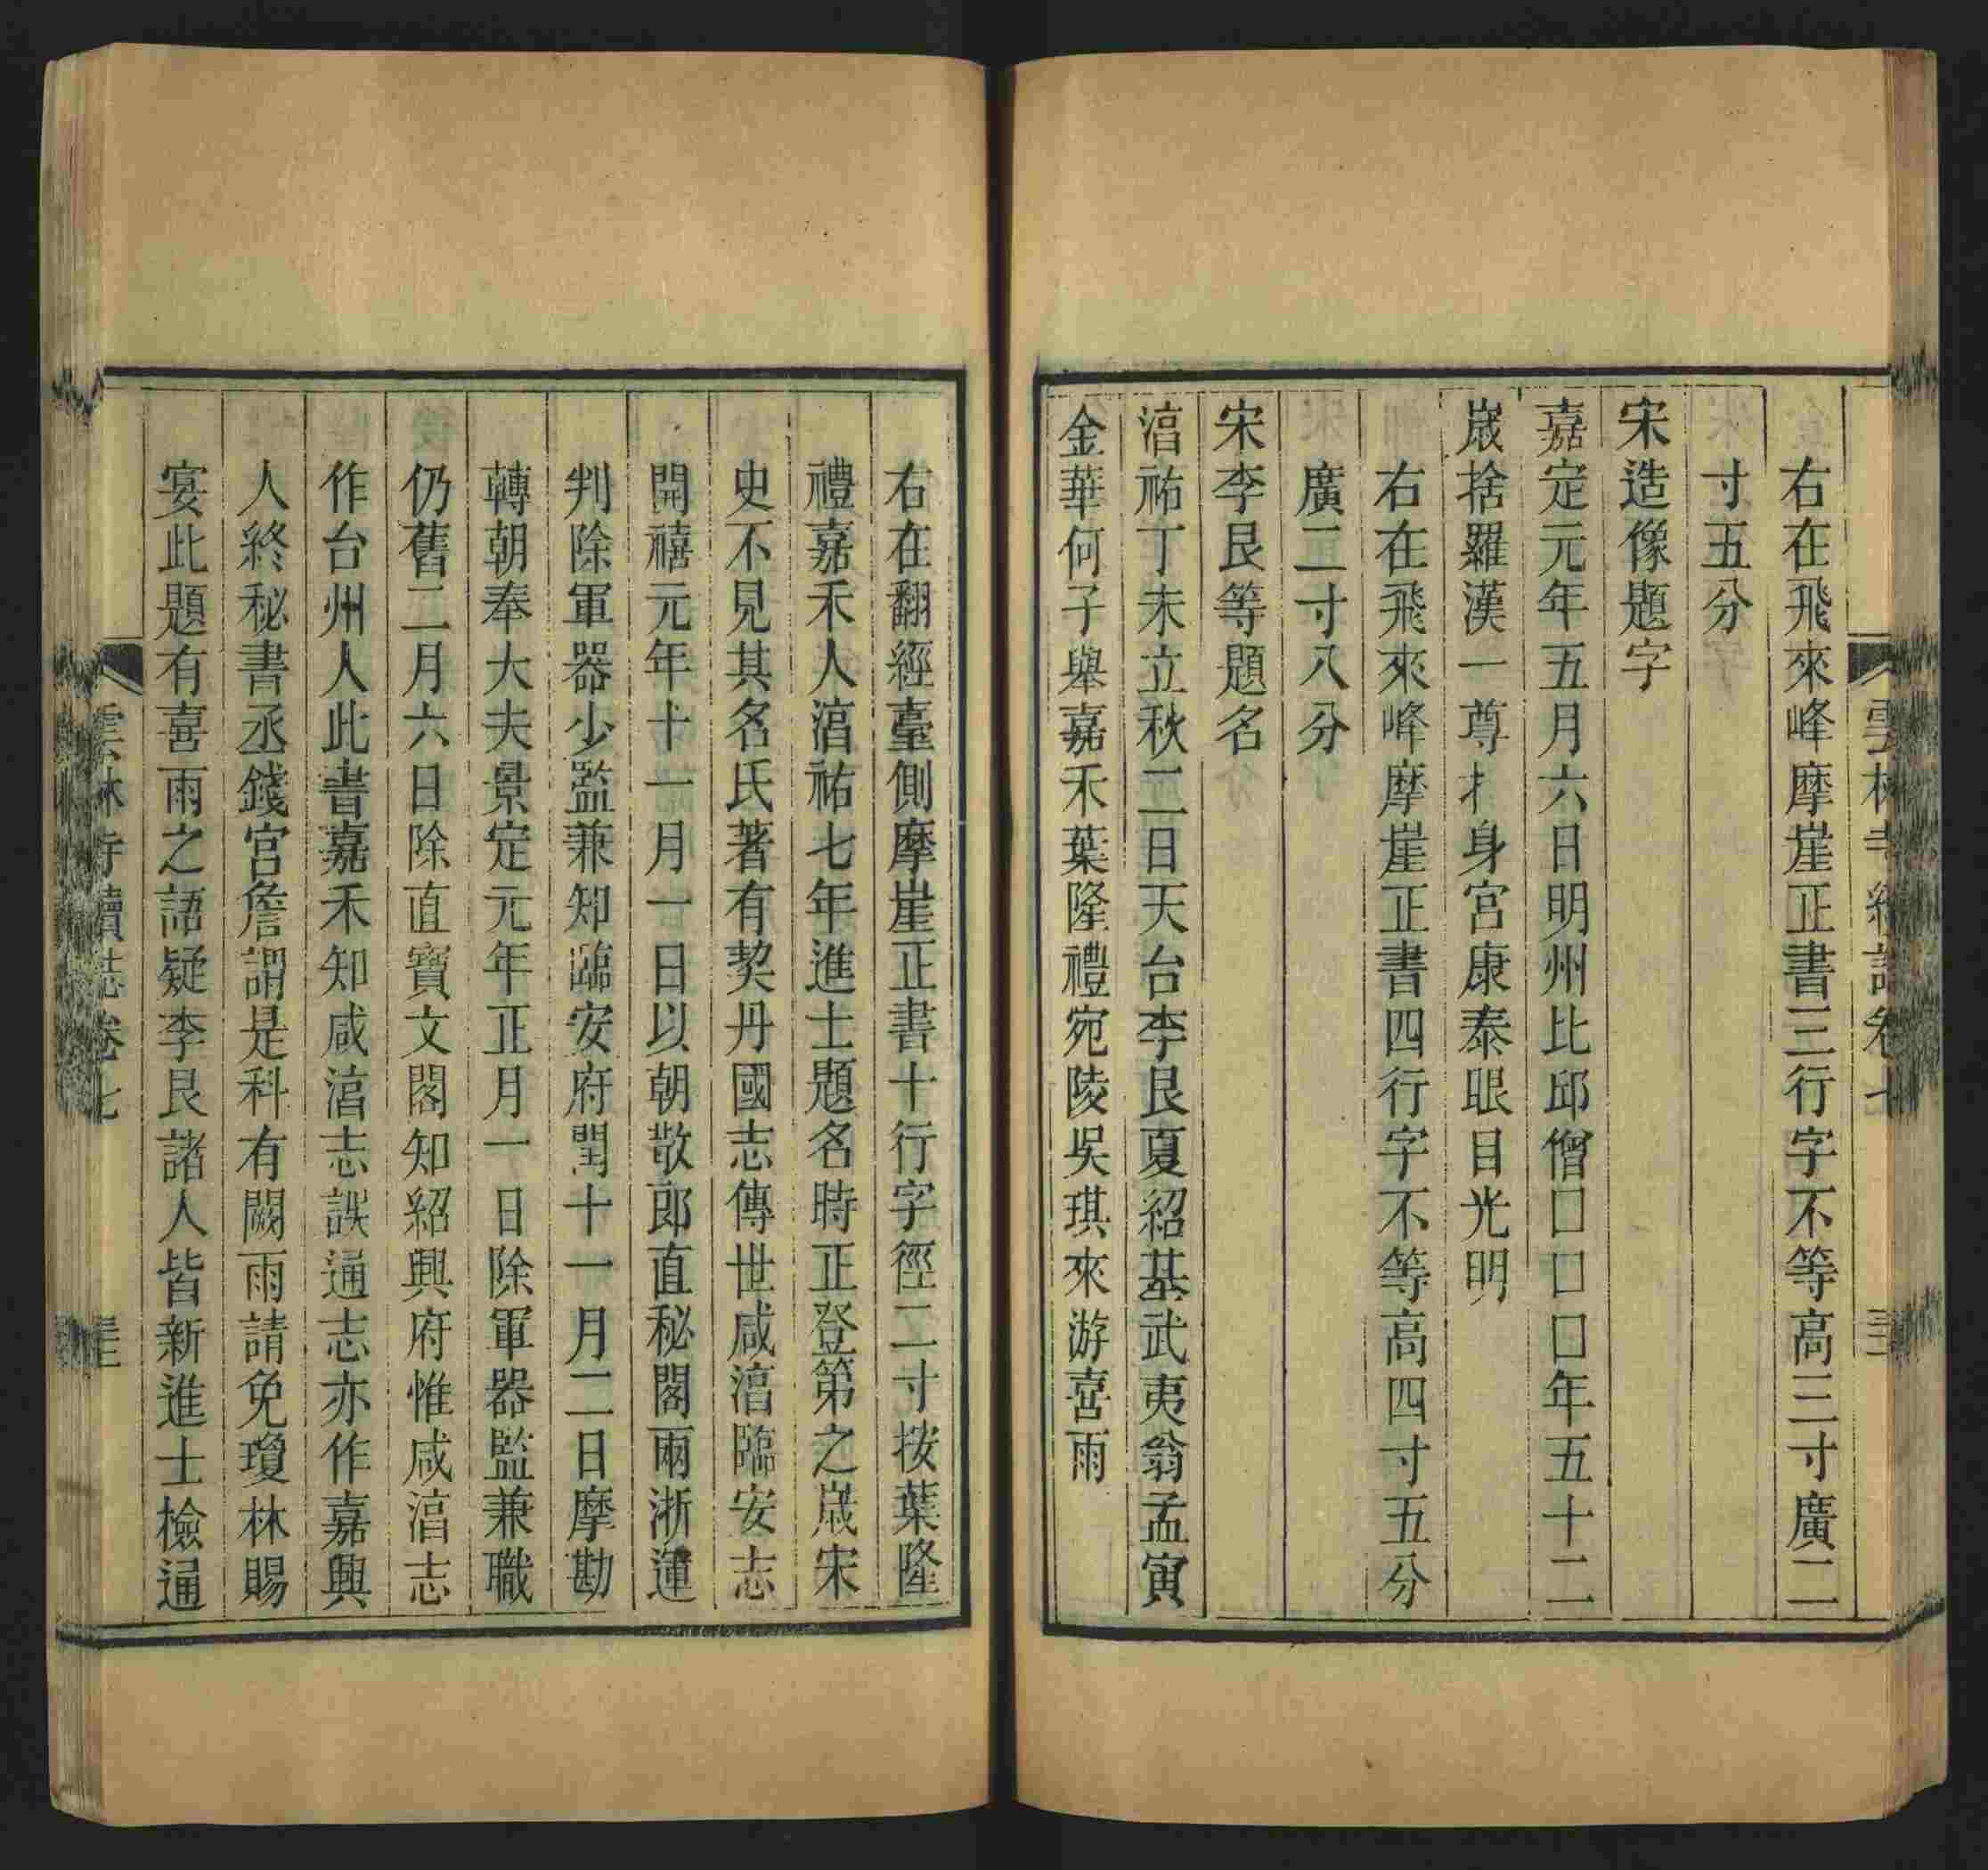 右在飛來峰摩崖正書三行字不等高三寸廣二
寸五分
宋造像題字
嘉定元年五月六日明州比邱僧□□□年五十二
嵗捨羅漢一尊扌身宮康泰眼目光明
右在飛來峰摩崖正書四行字不等高四寸五分
廣二寸八分
宋李艮等題名
湻祐丁未立秋二日天台李艮夏紹基武夷翁孟寅
金華何子舉嘉禾葉隆禮宛陵吳琪來游喜雨
右在翻經臺側摩崖正書十行字徑二寸按葉隆
禮嘉禾人湻祐七年進士題名時正登第之嵗宋
史不見其名氏著有契丹國志傳世咸湻臨安志
開禧元年十一月一日以朝散郎直秘閣兩浙運
判除軍器少監兼知臨安府閏十一月二日摩勘
轉朝奉大夫景定元年正月一日除軍器監兼職
仍舊二月六日除直寶文閣知紹興府惟咸湻志
作台州人此書嘉禾知咸湻志誤通志亦作嘉興
人終秘書丞錢宮詹謂是科有闕雨請免瓊林賜
宴此題有喜雨之語疑李艮諸人皆新進士檢通
雲林寺續誌卷七